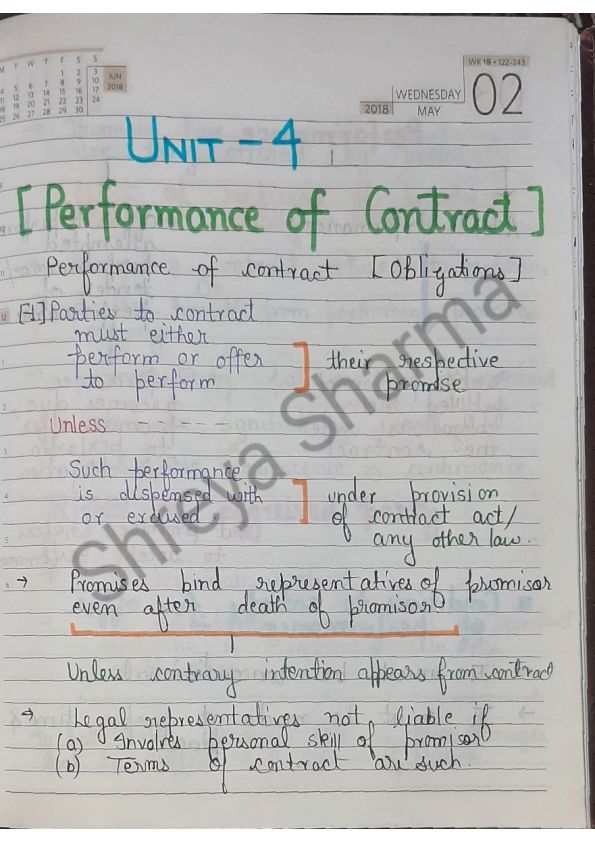 M T W T F S S
1 2 3
4 5 6 7 8 9 10
11 12 13 14 15 16 17
18 19 20 21 22 23 24
25 26 27 28 29 30
JUN
2018
WK 18 • 122-243
WEDNESDAY
02
2018
MAY
UNIT - 4
[Performance of Contract]
Performance of contract [Obligations]
[1] Parties to contract
must either
perform or offer
to perform
their respective
promise
Unless - - - - - -
Such performance
is dispensed with
or excused.
under provision
of contract act/
any other law.
→ Promises bind representatives of promisor
even after death of promisor
Unless contrary intention appears from contract
→ Legal representatives not liable if
(a) Involves personal skill of promisor
(b) Terms of contract are such.
Shreya Sharma